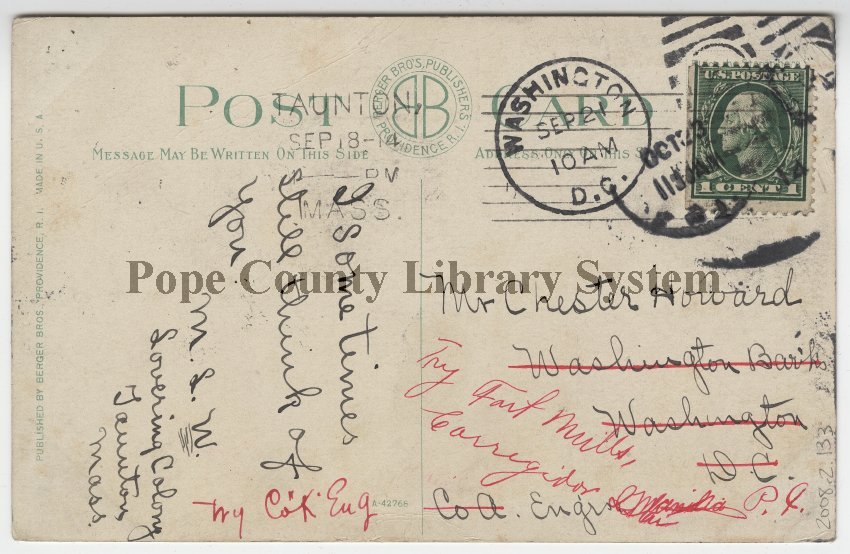 POST CARD
BERGER BRO'S, PUBLISHERS
PROVIDENCE R.I.
BB
MESSAGE MAY BE WRITTEN ON THIS SIDE
ADDRESS ON
TAUNTON,
SEP 18-14
PM
MASS.
WASHINGTON
SEP 21
10 AM
D.C.
OCT 23
11 30 AM
14
U.S. POSTAGE
1 CENT 1
PUBLISHED BY BERGER BROS. PROVIDENCE, R. I. MADE IN U. S. A.
I Sometimes
still think of
you.
M. L. W.
Lovering Colony
Taunton
Mass.
Mr Chester Howard
Washington Bar'ks
Washington
D.C.
Co A. Engrs Manila P. I.
Try Fort Mills,
Corregidor
Try Co "K" Eng
A-42766
2008.2.133
Pope County Library System